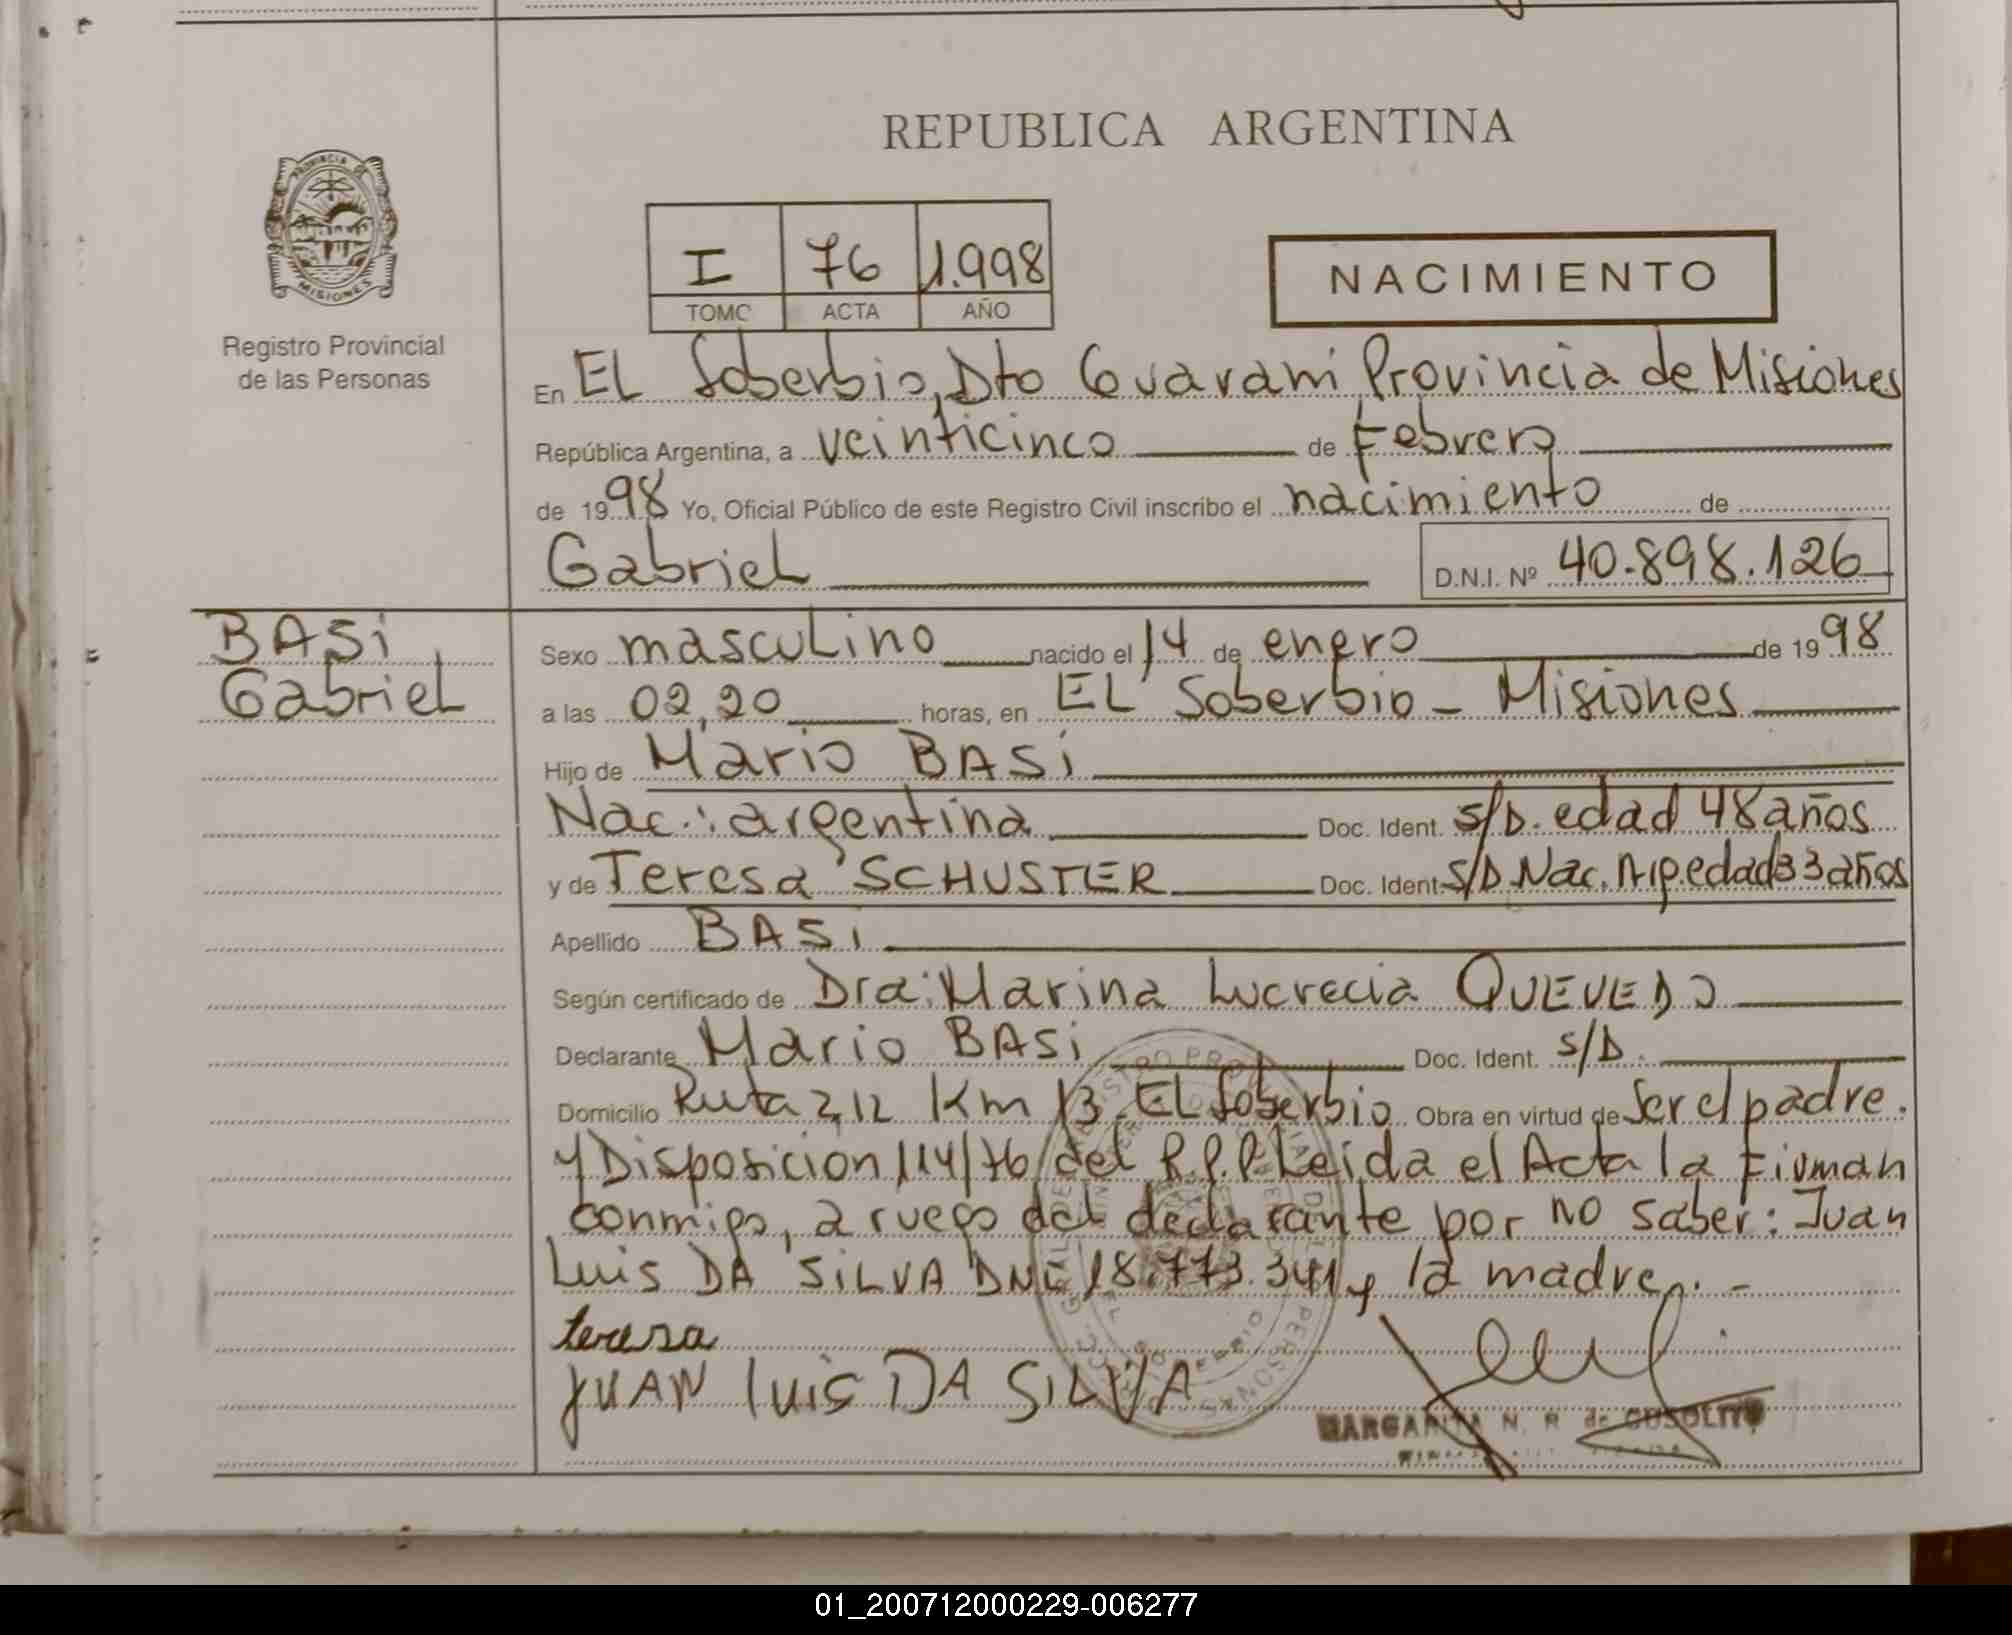 REPUBLICA ARGENTINA
PROVINCIA DE
MISIONES
Registro Provincial
de las Personas
I 76 1.998
TOMO ACTA AÑO
NACIMIENTO
En EL Soberbio, Dto Guarani Provincia de Misiones
República Argentina, a veinticinco de Febrero
de 1998 Yo, Oficial Público de este Registro Civil inscribo el nacimiento de
Gabriel D.N.I. Nº 40.898.126
BASi
Gabriel
Sexo masculino nacido el 14 de enero de 1998
a las 02,20 horas, en EL Soberbio - Misiones
Hijo de Mario BASi
Nac.: argentina Doc. Ident. S/D. edad 48 años
y de Teresa SCHUSTER Doc. Ident. S/D Nac. Arg edad 33 años
Apellido BASi
Según certificado de Dra: Marina Lucrecia QUEVEDO
Declarante Mario BASi Doc. Ident. S/D.
Domicilio Ruta 212 Km 13 EL Soberbio Obra en virtud de Ser el padre.
y Disposicion 114/76 del R.P.P. Leida el Acta la Firman
conmigo, a ruego del declarante por no saber: Juan
Luis DA SiLVA DNI 18.773.341 y la madre. -
teresa
JUAN LUiS DA SiLVA
MARGARITA N. R. de
01_200712000229-006277